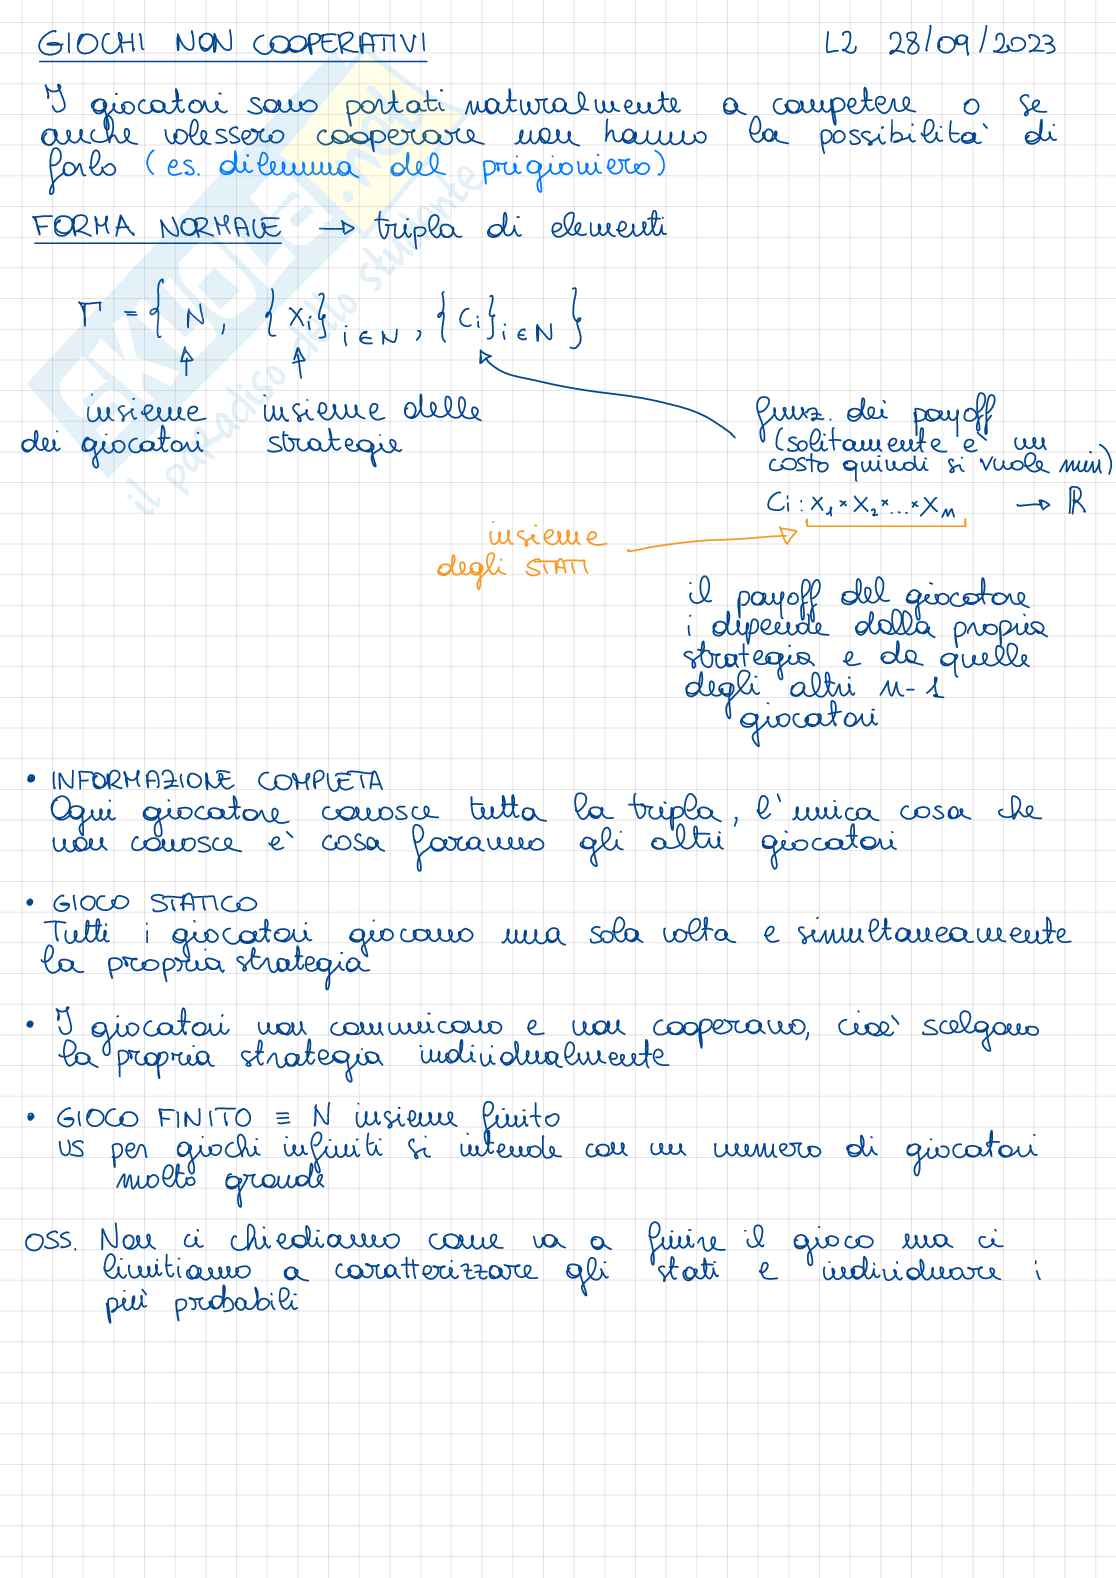 GIOCHI NON COOPERATIVI L2 28/09/2023
I giocatori sono portati naturalmente a competere o se
anche volessero cooperare non hanno la possibilità di
farlo (es. dilemma del prigioniero)
FORMA NORMALE → tripla di elementi
Γ = { N, {Xi}i∈N, {Ci}i∈N }
insieme dei giocatori
insieme delle strategie
funz. dei payoff
(solitamente è un
costo quindi si vuole min)
Ci : X1 × X2 × ... × Xn → ℝ
insieme
degli STATI
il payoff del giocatore
i dipende dalla propria
strategia e da quelle
degli altri n-1
giocatori
• INFORMAZIONE COMPLETA
Ogni giocatore conosce tutta la tripla, l'unica cosa che
non conosce è cosa faranno gli altri giocatori
• GIOCO STATICO
Tutti i giocatori giocano una sola volta e simultaneamente
la propria strategia
• I giocatori non comunicano e non cooperano, cioè scelgono
la propria strategia individualmente
• GIOCO FINITO ≡ N insieme finito
VS per giochi infiniti si intende con un numero di giocatori
molto grande
OSS. Non ci chiediamo come va a finire il gioco ma ci
limitiamo a caratterizzare gli stati e individuare i
più probabili
SKUOLA.net
il paradiso dello studente